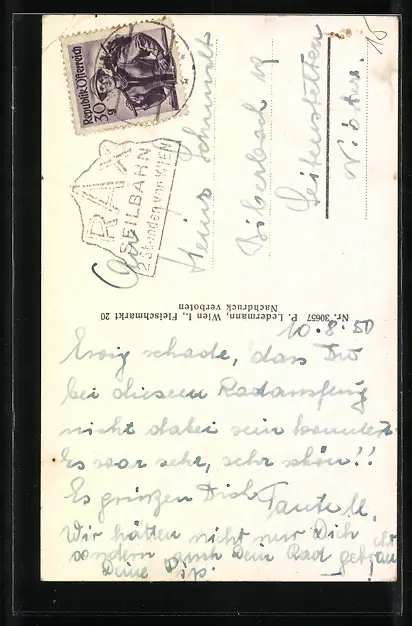 Republik Österreich
30 g
RAX
SEILBAHN
2 Stunden von WIEN
An
Heinz Schmidt
Seitenstetten
N. Öster.
15
Nr. 30657 P. Ledermann, Wien I., Fleischmarkt 20
Nachdruck verboten
10.8.50
Ewig schade, dass Du
bei diesem Radausflug
nicht dabei sein konntest.
Es war sehr, sehr schön!!
Es grüßen Dich Tante M.
Wir hätten nicht nur Dich
sondern auch Dein Rad
Deine